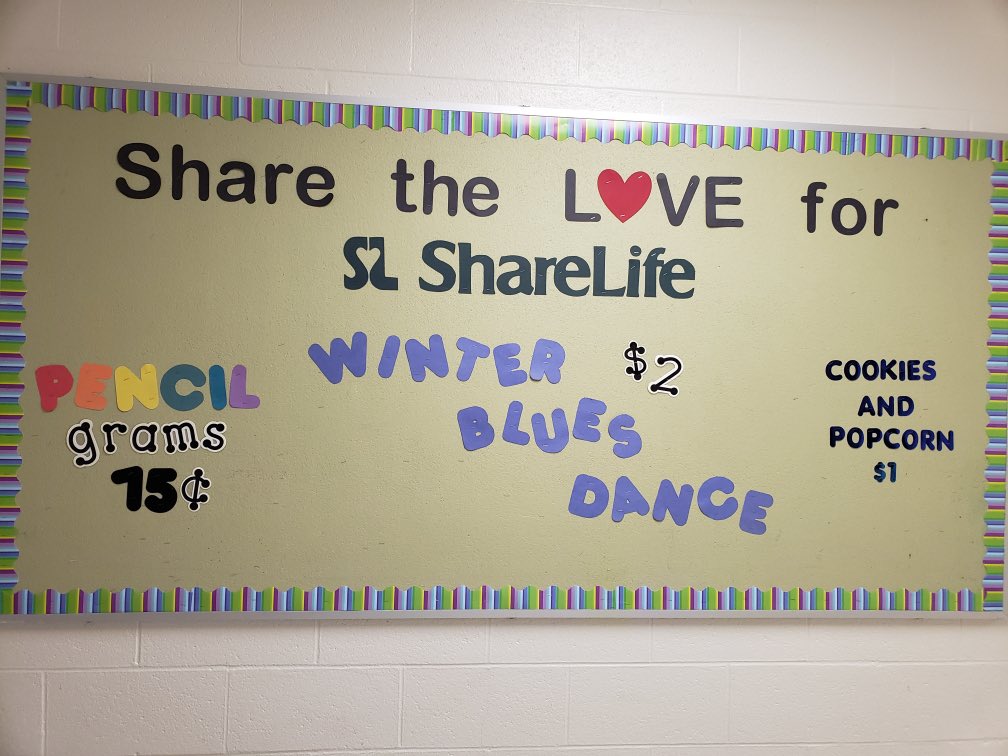 Share the LOVE for
SL ShareLife
PENCIL
grams
75¢
WINTER $2
BLUES
DANCE
COOKIES
AND
POPCORN
$1